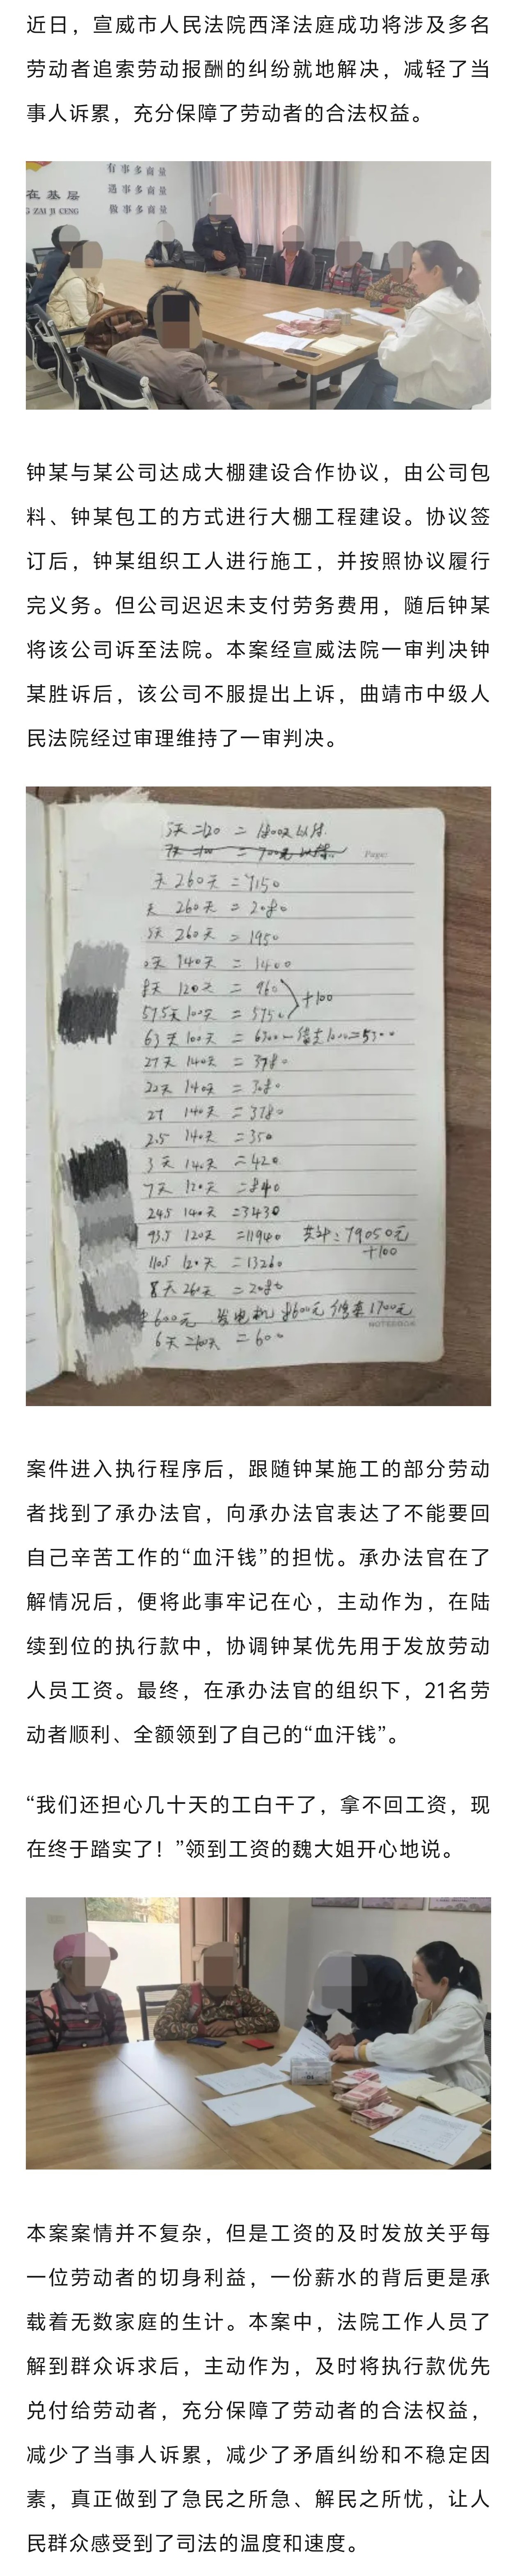 近日，宣威市人民法院西泽法庭成功将涉及多名
劳动者追索劳动报酬的纠纷就地解决，减轻了当
事人诉累，充分保障了劳动者的合法权益。
有事多商量
遇事多商量
做事多商量
在基层
ZAI JI CENG
钟某与某公司达成大棚建设合作协议，由公司包
料、钟某包工的方式进行大棚工程建设。协议签
订后，钟某组织工人进行施工，并按照协议履行
完义务。但公司迟迟未支付劳务费用，随后钟某
将该公司诉至法院。本案经宣威法院一审判决钟
某胜诉后，该公司不服提出上诉，曲靖市中级人
民法院经过审理维持了一审判决。
Page:
天 260天 = 7150
天 260天 = 2080
天 260天 = 1950
天 140天 = 1400
8天 120天 = 960
57.5天 100天 = 5750 +100
63天 100天 = 6300 - 借支1000 = 5300
27天 140天 = 3780
22天 140天 = 3080
27 140天 = 3780
2.5 140天 = 350
3天 140天 = 420
7天 120天 = 840
24.5 140天 = 3430
93.5 120天 = 11940 共计：79050元
+100
110.5 120天 = 13260
8天 260天 = 2080
600元 发电机 600元 1700元
NOTEBOOK
6天 100天 = 600
案件进入执行程序后，跟随钟某施工的部分劳动
者找到了承办法官，向承办法官表达了不能要回
自己辛苦工作的“血汗钱”的担忧。承办法官在了
解情况后，便将此事牢记在心，主动作为，在陆
续到位的执行款中，协调钟某优先用于发放劳动
人员工资。最终，在承办法官的组织下，21名劳
动者顺利、全额领到了自己的“血汗钱”。
“我们还担心几十天的工白干了，拿不回工资，现
在终于踏实了！”领到工资的魏大姐开心地说。
本案案情并不复杂，但是工资的及时发放关乎每
一位劳动者的切身利益，一份薪水的背后更是承
载着无数家庭的生计。本案中，法院工作人员了
解到群众诉求后，主动作为，及时将执行款优先
兑付给劳动者，充分保障了劳动者的合法权益，
减少了当事人诉累，减少了矛盾纠纷和不稳定因
素，真正做到了急民之所急、解民之所忧，让人
民群众感受到了司法的温度和速度。